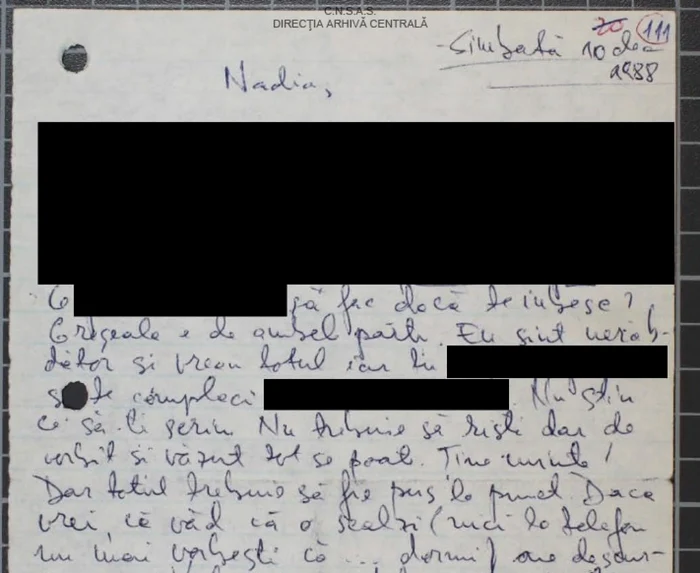 C.N.S.A.S.
DIRECŢIA ARHIVĂ CENTRALĂ
20 111
Sîmbătă 10 dec
1988
Nadia,
să fac dacă te iubesc?
Greşeala e de ambel părţi. Eu sînt nerăb-
dător şi vreau totul iar tu
te complaci Nu ştiu
ce să-ţi scriu Nu trebuie să rişti dar de
vorbit şi văzut tot se poate. Ţine minte!
Dar totul trebuie să fie pus la punct. Dacă
vrei, că văd că o scalzi (nici la telefon
nu mai vorbeşti că ... dormi)